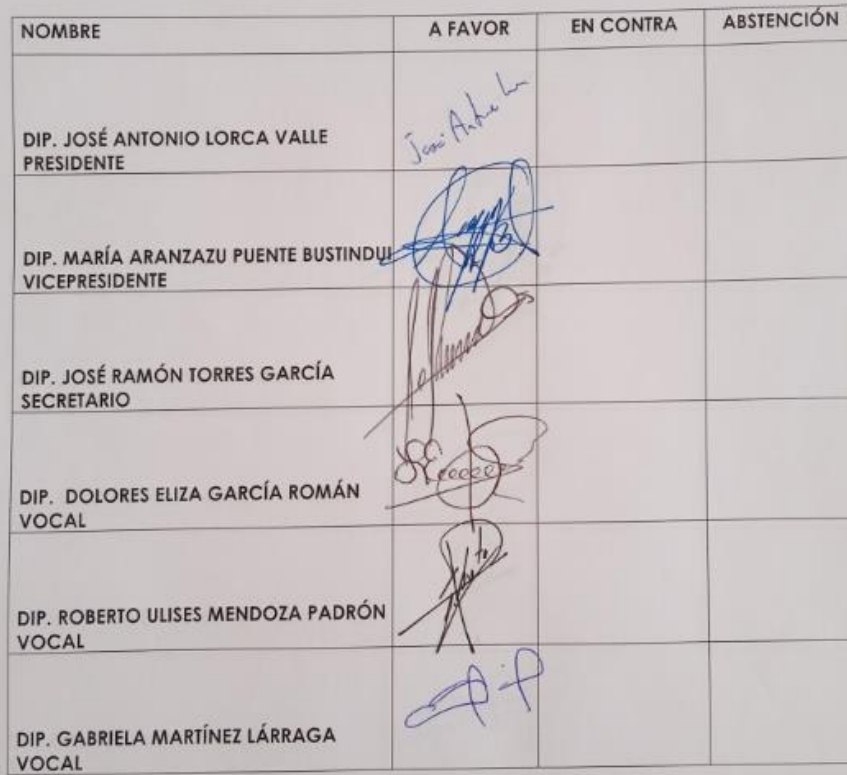 NOMBRE A FAVOR EN CONTRA ABSTENCIÓN
José Antonio
DIP. JOSÉ ANTONIO LORCA VALLE
PRESIDENTE
DIP. MARÍA ARANZAZU PUENTE BUSTINDUI
VICEPRESIDENTE
DIP. JOSÉ RAMÓN TORRES GARCÍA
SECRETARIO
DIP. DOLORES ELIZA GARCÍA ROMÁN
VOCAL
DIP. ROBERTO ULISES MENDOZA PADRÓN
VOCAL
DIP. GABRIELA MARTÍNEZ LÁRRAGA
VOCAL